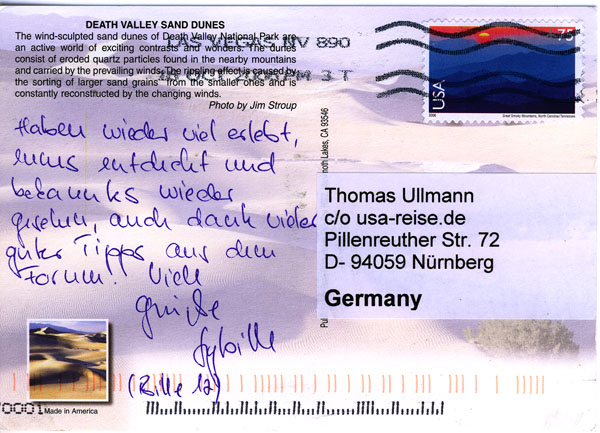 DEATH VALLEY SAND DUNES
The wind-sculpted sand dunes of Death Valley National Park are
an active world of exciting contrasts and wonders. The dunes
consist of eroded quartz particles found in the nearby mountains
and carried by the prevailing winds. The rippling effect is caused by
the sorting of larger sand grains from the smaller ones and is
constantly reconstructed by the changing winds.
Photo by Jim Stroup
LAS VEGAS NV 890
PM 3 T
75
USA
2006
Great Smoky Mountains, North Carolina/Tennessee
Haben wieder viel erlebt,
neues entdeckt und
bekanntes wieder
gesehen, auch dank vieler
guter Tipps aus dem
Forum. Viele
Grüße
Sybille
(Bille 12)
Lakes, CA 93546
Thomas Ullmann
c/o usa-reise.de
Pillenreuther Str. 72
D- 94059 Nürnberg
Germany
0001
Made in America